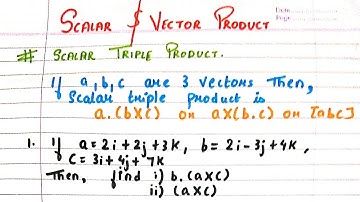 SCALAR & VECTOR PRODUCT
Date
Page
# SCALAR TRIPLE PRODUCT.
If a, b, c are 3 vectors Then,
Scalar triple product is
a.(bxc) or ax(b.c) or [abc]
1. If a = 2i + 2j + 3k, b = 2i - 3j + 4k,
c = 3i + 4j + 7k
Then, find i) b.(axc)
ii) (axc)